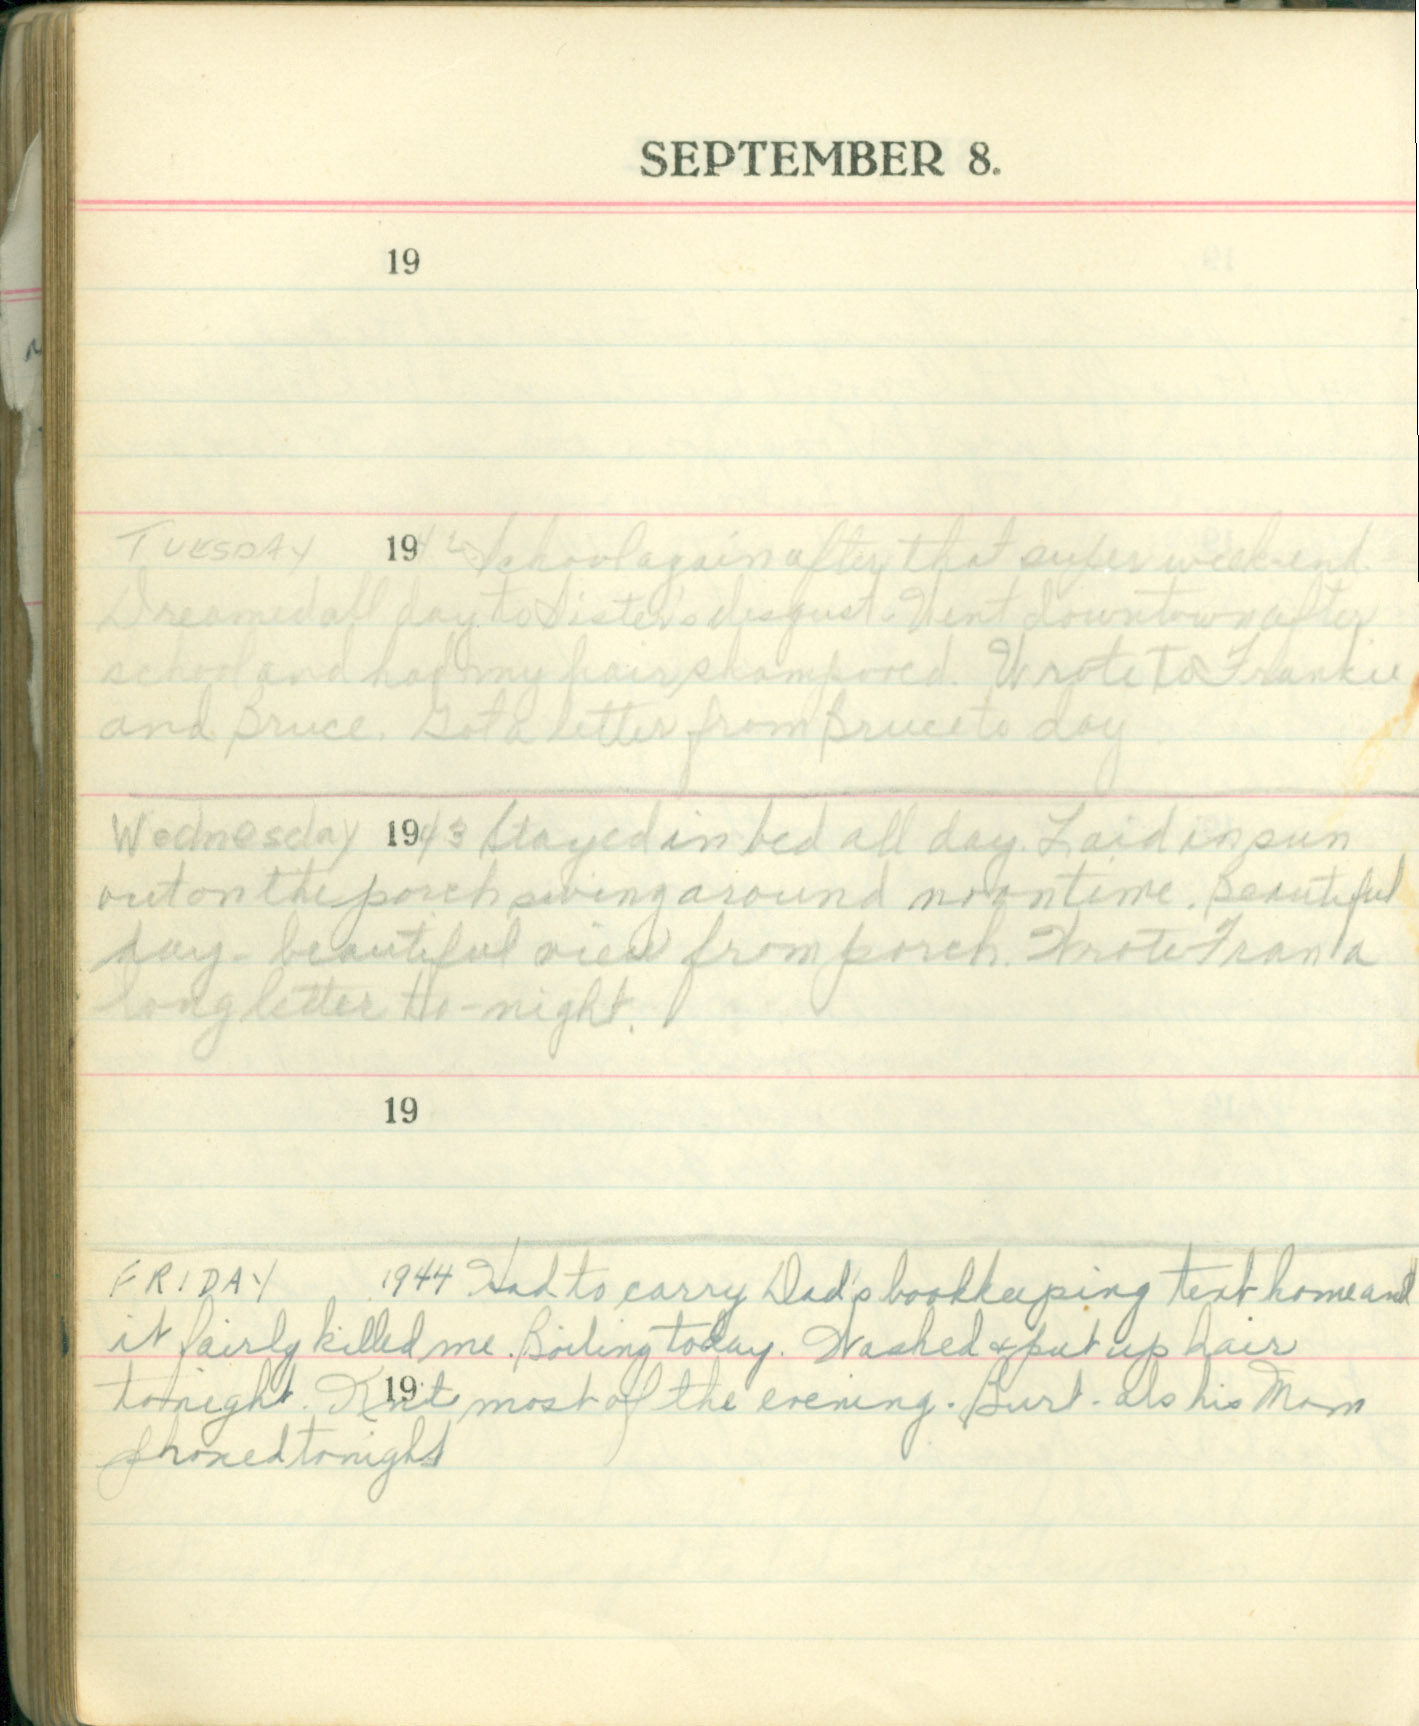 SEPTEMBER 8.
19
TUESDAY 1942 School again after that super week-end.
Dreamed all day to Sister's disgust. Went downtown after
school and had my hair shampooed. Wrote to Frankie
and Bruce. Got a letter from Bruce to day.
Wednesday 1943 Stayed in bed all day. Laid in sun
out on the porch swing around noontime. Beautiful
day - beautiful view from porch. Wrote Fran a
long letter to-night.
19
FRIDAY 1944 Had to carry Dad's bookkeeping text home and
it fairly killed me. Boiling today. Washed & put up hair
tonight. Knit most of the evening. Burt - als his Mom
19
phoned tonight